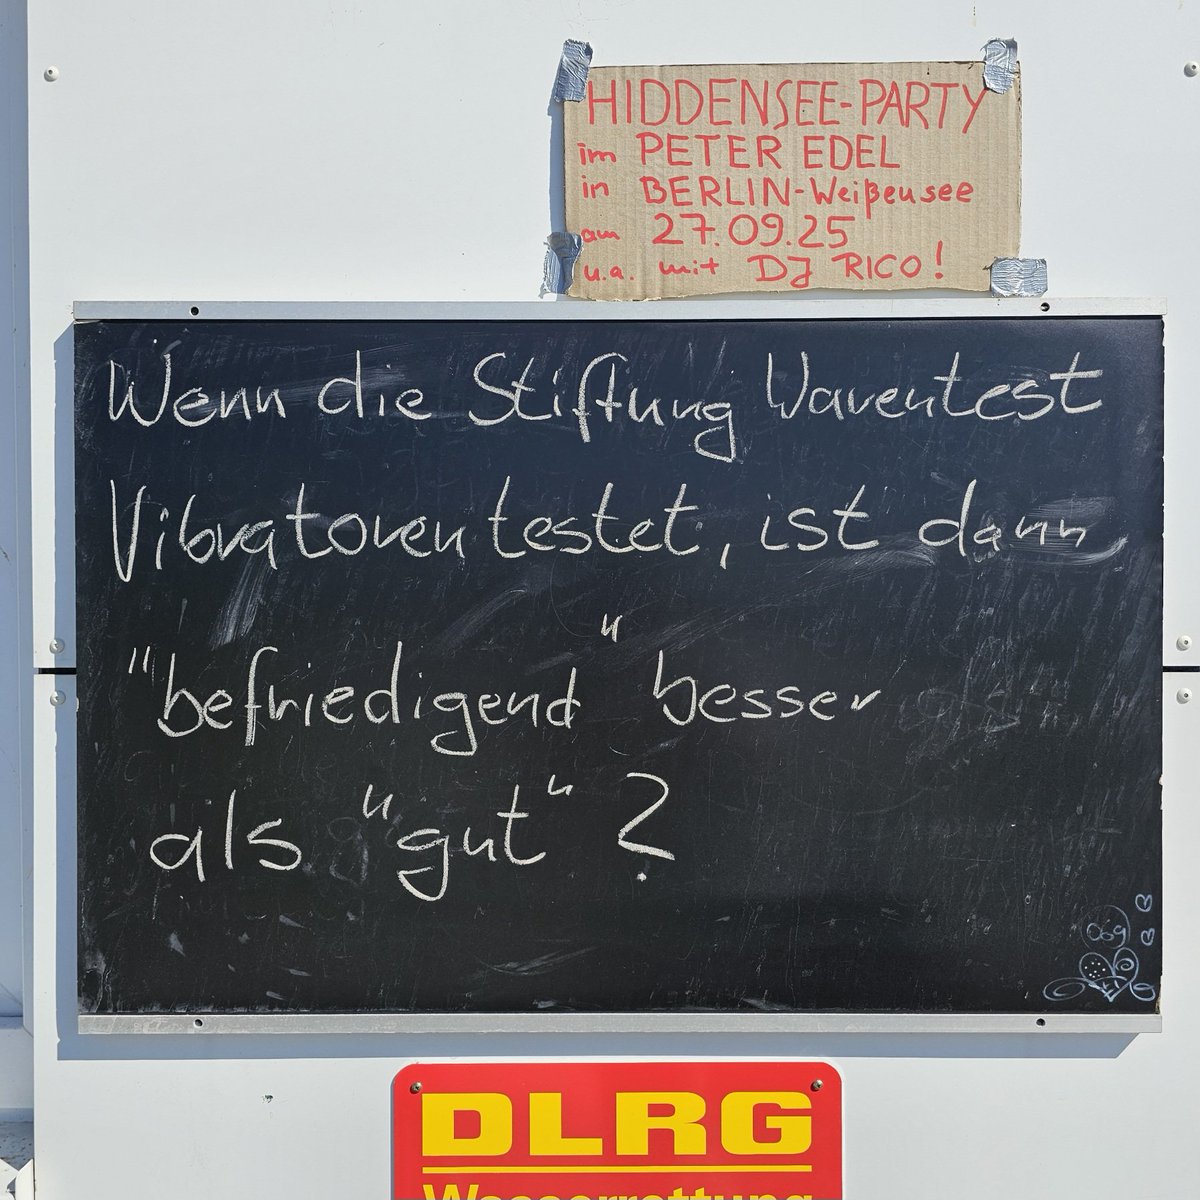 HIDDENSEE-PARTY
im PETER EDEL
in BERLIN-Weißensee
am 27.09.25
u.a. mit DJ RICO!
Wenn die Stiftung Warentest
Vibratoren testet, ist dann
"befriedigend" besser
als "gut"?
069
DLRG
Wasserrettung